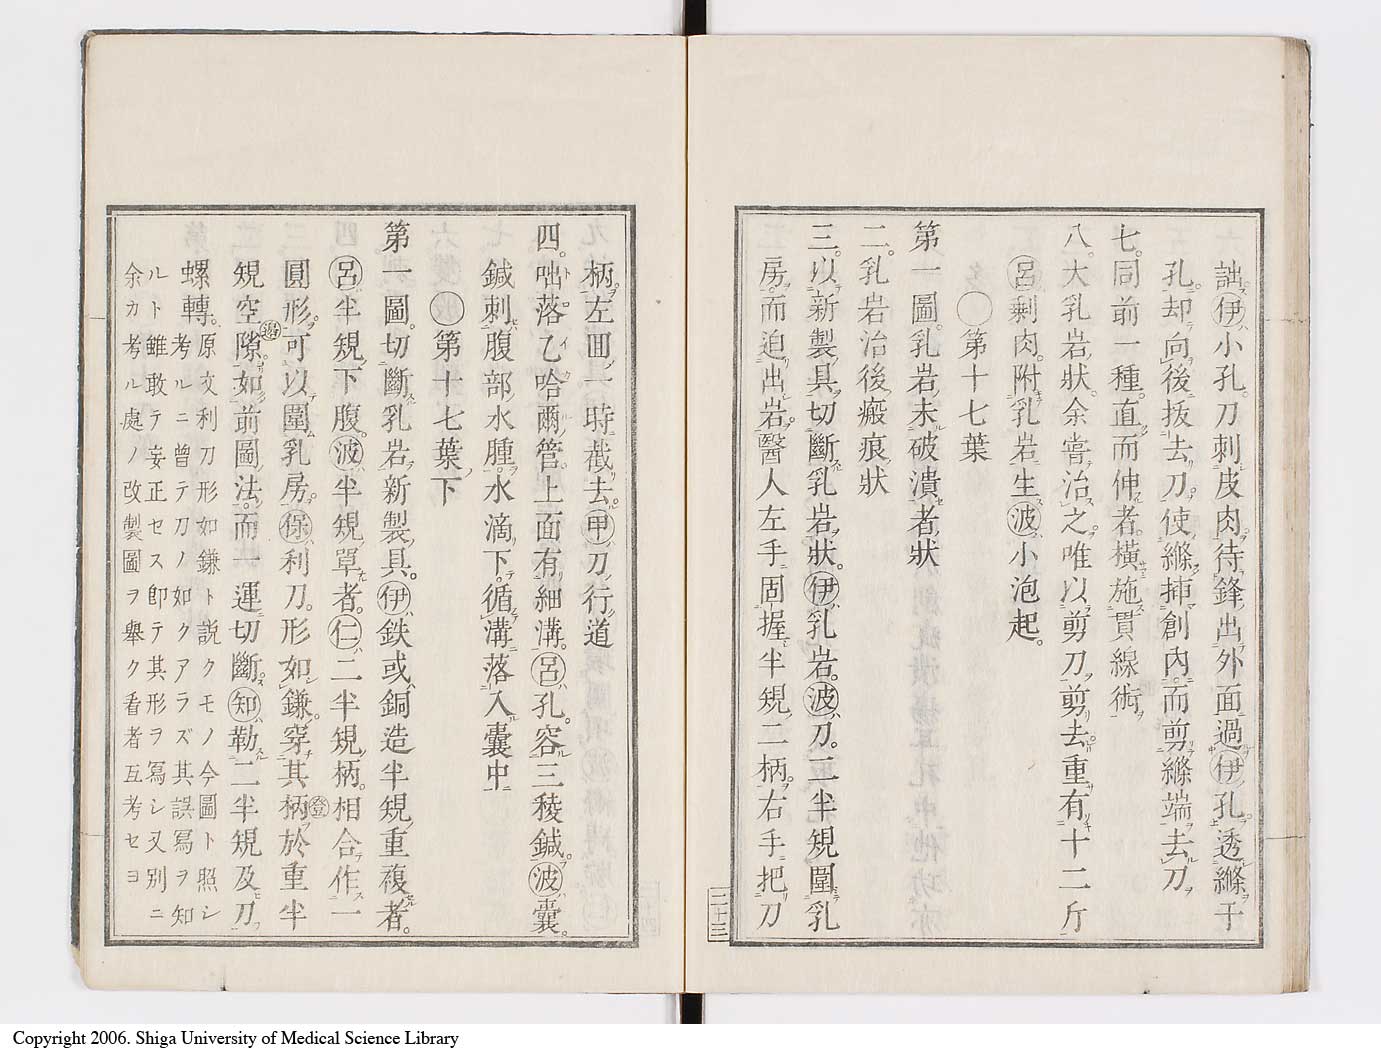 詘㋑伊小孔。刀刺皮肉待鋒出外面過伊孔透縧于
孔却向後抜去刀使縧挿創內而剪縧端去刀
七。同前一種。直而伸者。橫施貫線術
八。大乳岩狀。余嘗治之唯以剪刀剪去重有十二斤
呂剩肉。附乳岩生波小泡起。
〇第十七葉
第一圖。乳岩未破潰者狀
二。乳岩治後瘢痕狀
三。以新製具切斷乳岩狀。伊乳岩。波刀。二半規圍乳
房而迫出岩醫人左手固握半規二柄。右手把刀
二十三
柄左回一時截去甲刀行道
四。咄落乙哈爾管。上面有細溝。呂孔。容三稜鍼波囊。
鍼刺腹部水腫。水滴下。循溝落入囊中
〇第十七葉下
第一圖。切斷乳岩新製具。伊鉄或銅造半規重複者。
呂半規下腹。波半規罩者。仁二半規柄。相合作一
圓形。可以圍乳房。保利刀。形如鎌。穿其柄於重半
登
規空隙。如前圖法。而一運切斷。知勒二半規及刀
邊
螺轉。原文利刀形如鎌ト說クモノ今圖ト照シ
考ルニ曾テ刀ノ如クアラズ其誤寫ヲ知
ルト雖敢テ妄正セス卽テ其形ヲ寫シ又別ニ
余カ考ル處ノ改製圖ヲ舉ク看者互考セヨ
Copyright 2006. Shiga University of Medical Science Library